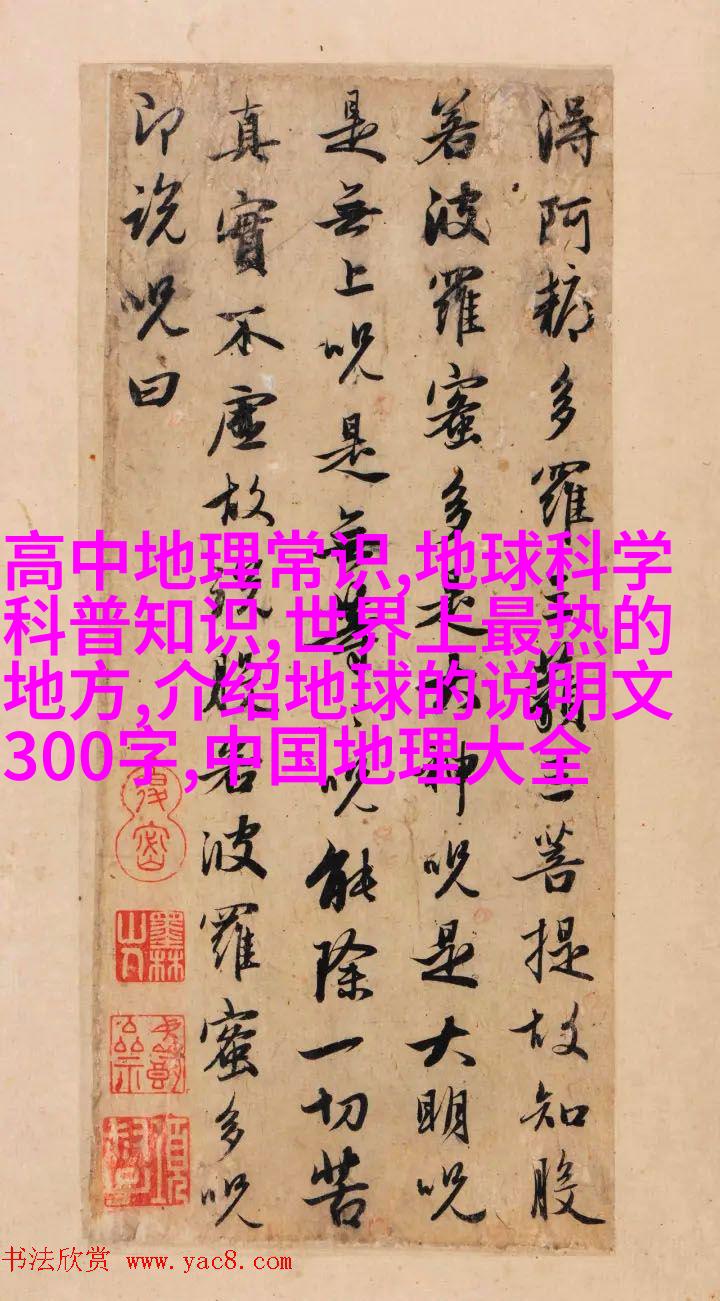 得阿耨多羅三藐三菩提故知般
若波羅蜜多是大神呪是大明呪
是無上呪是無等等呪能除一切苦
真實不虛故說般若波羅蜜多呪
即說呪曰
高中地理常识,地球科学
科普知识,世界上最热的
地方,介绍地球的说明文
300字,中国地理大全
墨林
书法欣赏 www.yac8.com